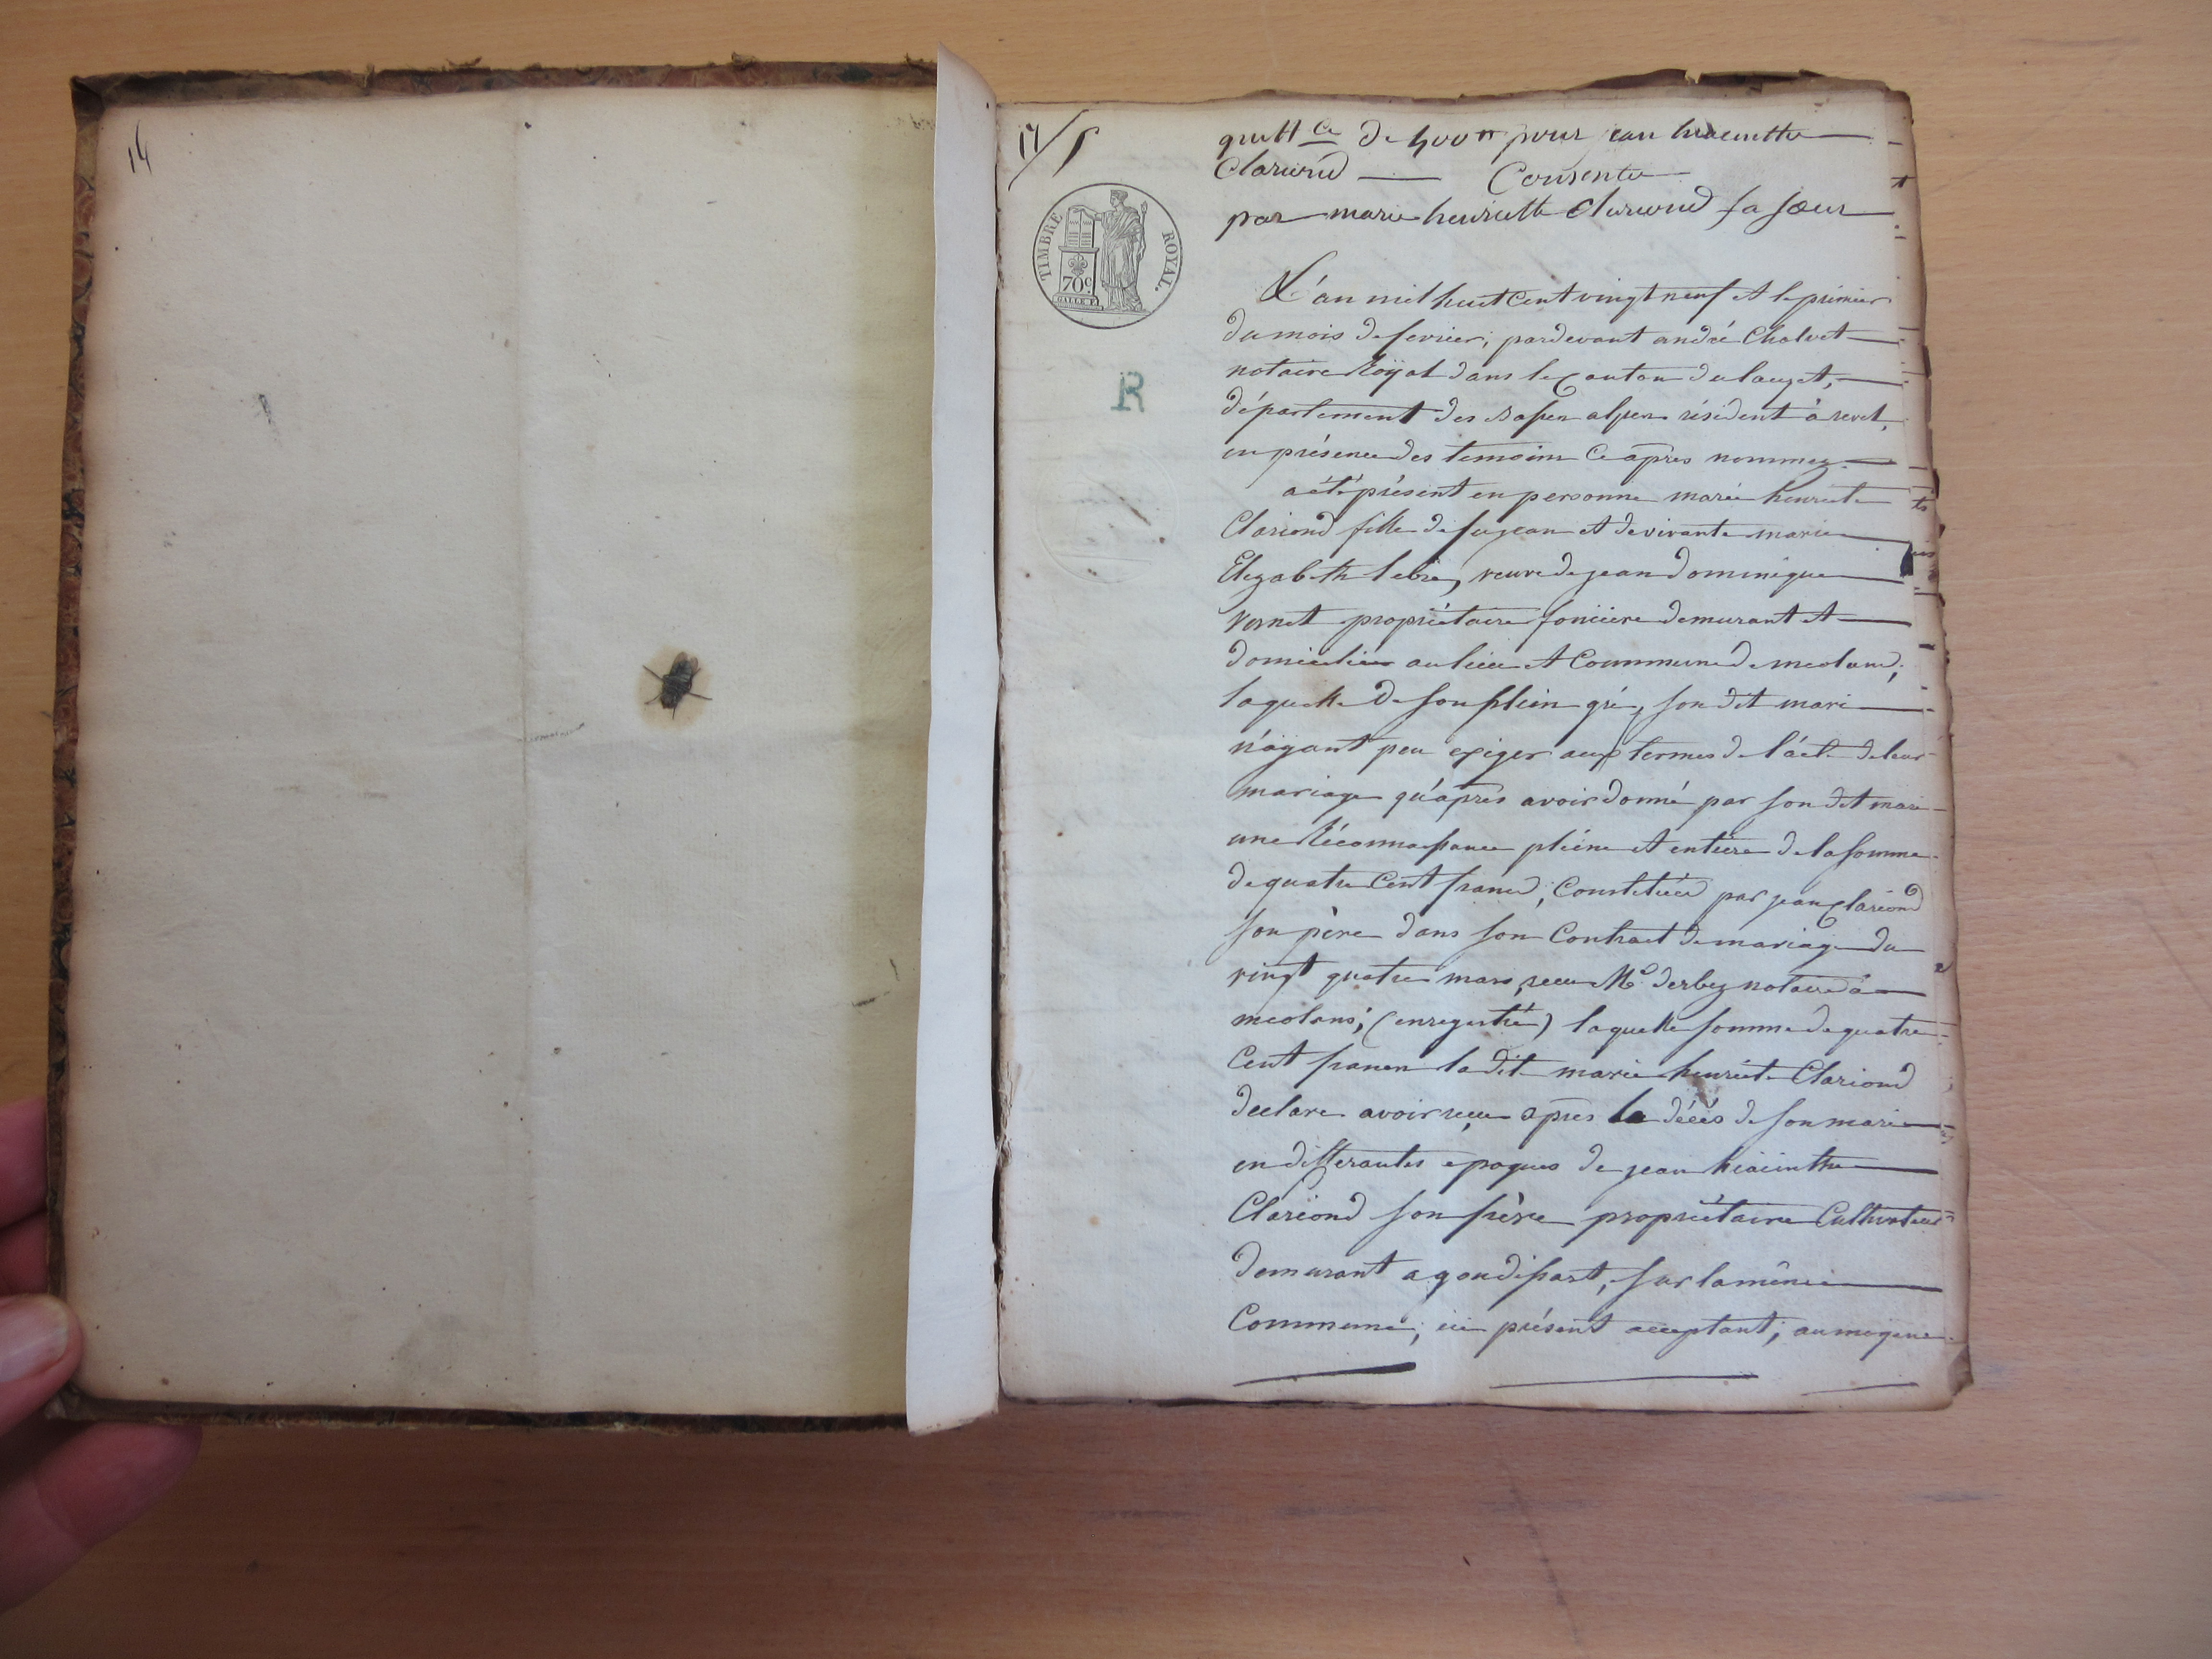 14
17/1
quitt.ce de 400 fr pour jean hiacinthe
Clariond Consentie
par marie henriette Clariond sa sœur
TIMBRE ROYAL.
70c
L'an mil huit Cent vingt neuf et le prémier
du mois de fevrier, pardevant andré Chalvet
notaire Röyal dans le Canton du lauzet,
département des Basses alpes résident à revel,
en présence des temoins Ci après nommez.
a été présent en personne marie henriete
Clariond fille de feu jean et de vivante marie
Elizabeth lebre, veuve de jean dominique
vernet propriétaire foncière demurant et
domiciliée au lieu et Commune de meolans,
laquelle de son plein gré, son dit mari
n'ayant peu exiger aux termes de l'acte de leur
mariage qu'après avoir donné par son dit mari
une Réconnaissance pleine et entière de la somme
de quatre Cent francs, Constituée par jean Clariond
son père dans son Contract de mariage du
vingt quatre mars, reçu Me derbez notaire à
meolans; (enregistré) laquelle somme de quatre
Cent francs la dite marie henriete Clariond
declare avoir reçue après le décés de son mari
en differantes epoques de jean hiacinthe
Clariond son frère propriétaire Cultivateur
demurant a gaudissart, sur la même
Commune, ici présent acceptant; au moyen